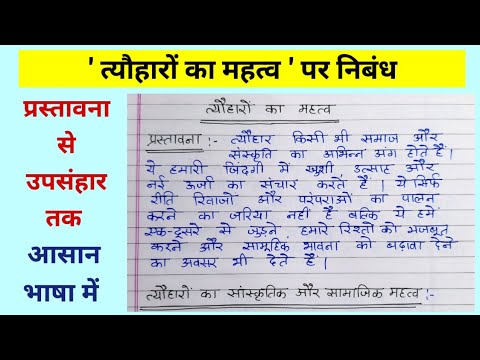 ' त्यौहारों का महत्व ' पर निबंध
प्रस्तावना
से
उपसंहार
तक
आसान
भाषा में
त्यौहारों का महत्व
प्रस्तावना :- त्यौहार किसी भी समाज और
संस्कृति का अभिन्न अंग होते हैं।
ये हमारी जिंदगी में खुशी उत्साह और
नई ऊर्जा का संचार करते हैं। ये सिर्फ
रीति रिवाजों और परंपराओं का पालन
करने का जरिया नहीं है बल्कि ये हमें
एक-दूसरे से जुड़ने, हमारे रिश्तों को मजबूत
करने और सामूहिक भावना को बढ़ावा देने
का अवसर भी देते हैं।
त्यौहारों का सांस्कृतिक और सामाजिक महत्व :-